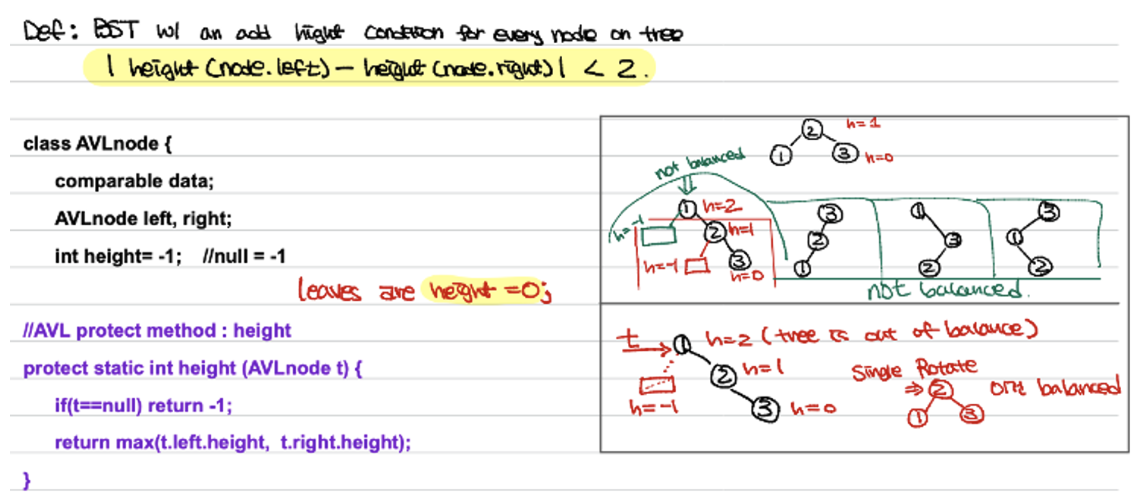 Def: BST w/ an add hight condition for every node on tree
| height (node.left) - height (node.right) | < 2.
class AVLnode {
comparable data;
AVLnode left, right;
int height= -1; //null = -1
leaves are height =0;
//AVL protect method : height
protect static int height (AVLnode t) {
if(t==null) return -1;
return max(t.left.height, t.right.height);
}
2 h=1
1 3 h=0
not balanced
1 h=2
h=-1
2 h=1
h=-1 3 h=0
3
2
1
1
3
2
3
1
2
not balanced.
t 1 h=2 (tree is out of balance)
2 h=1
h=-1 3 h=0
Single Rotate
⇒ 2 balanced
1 3